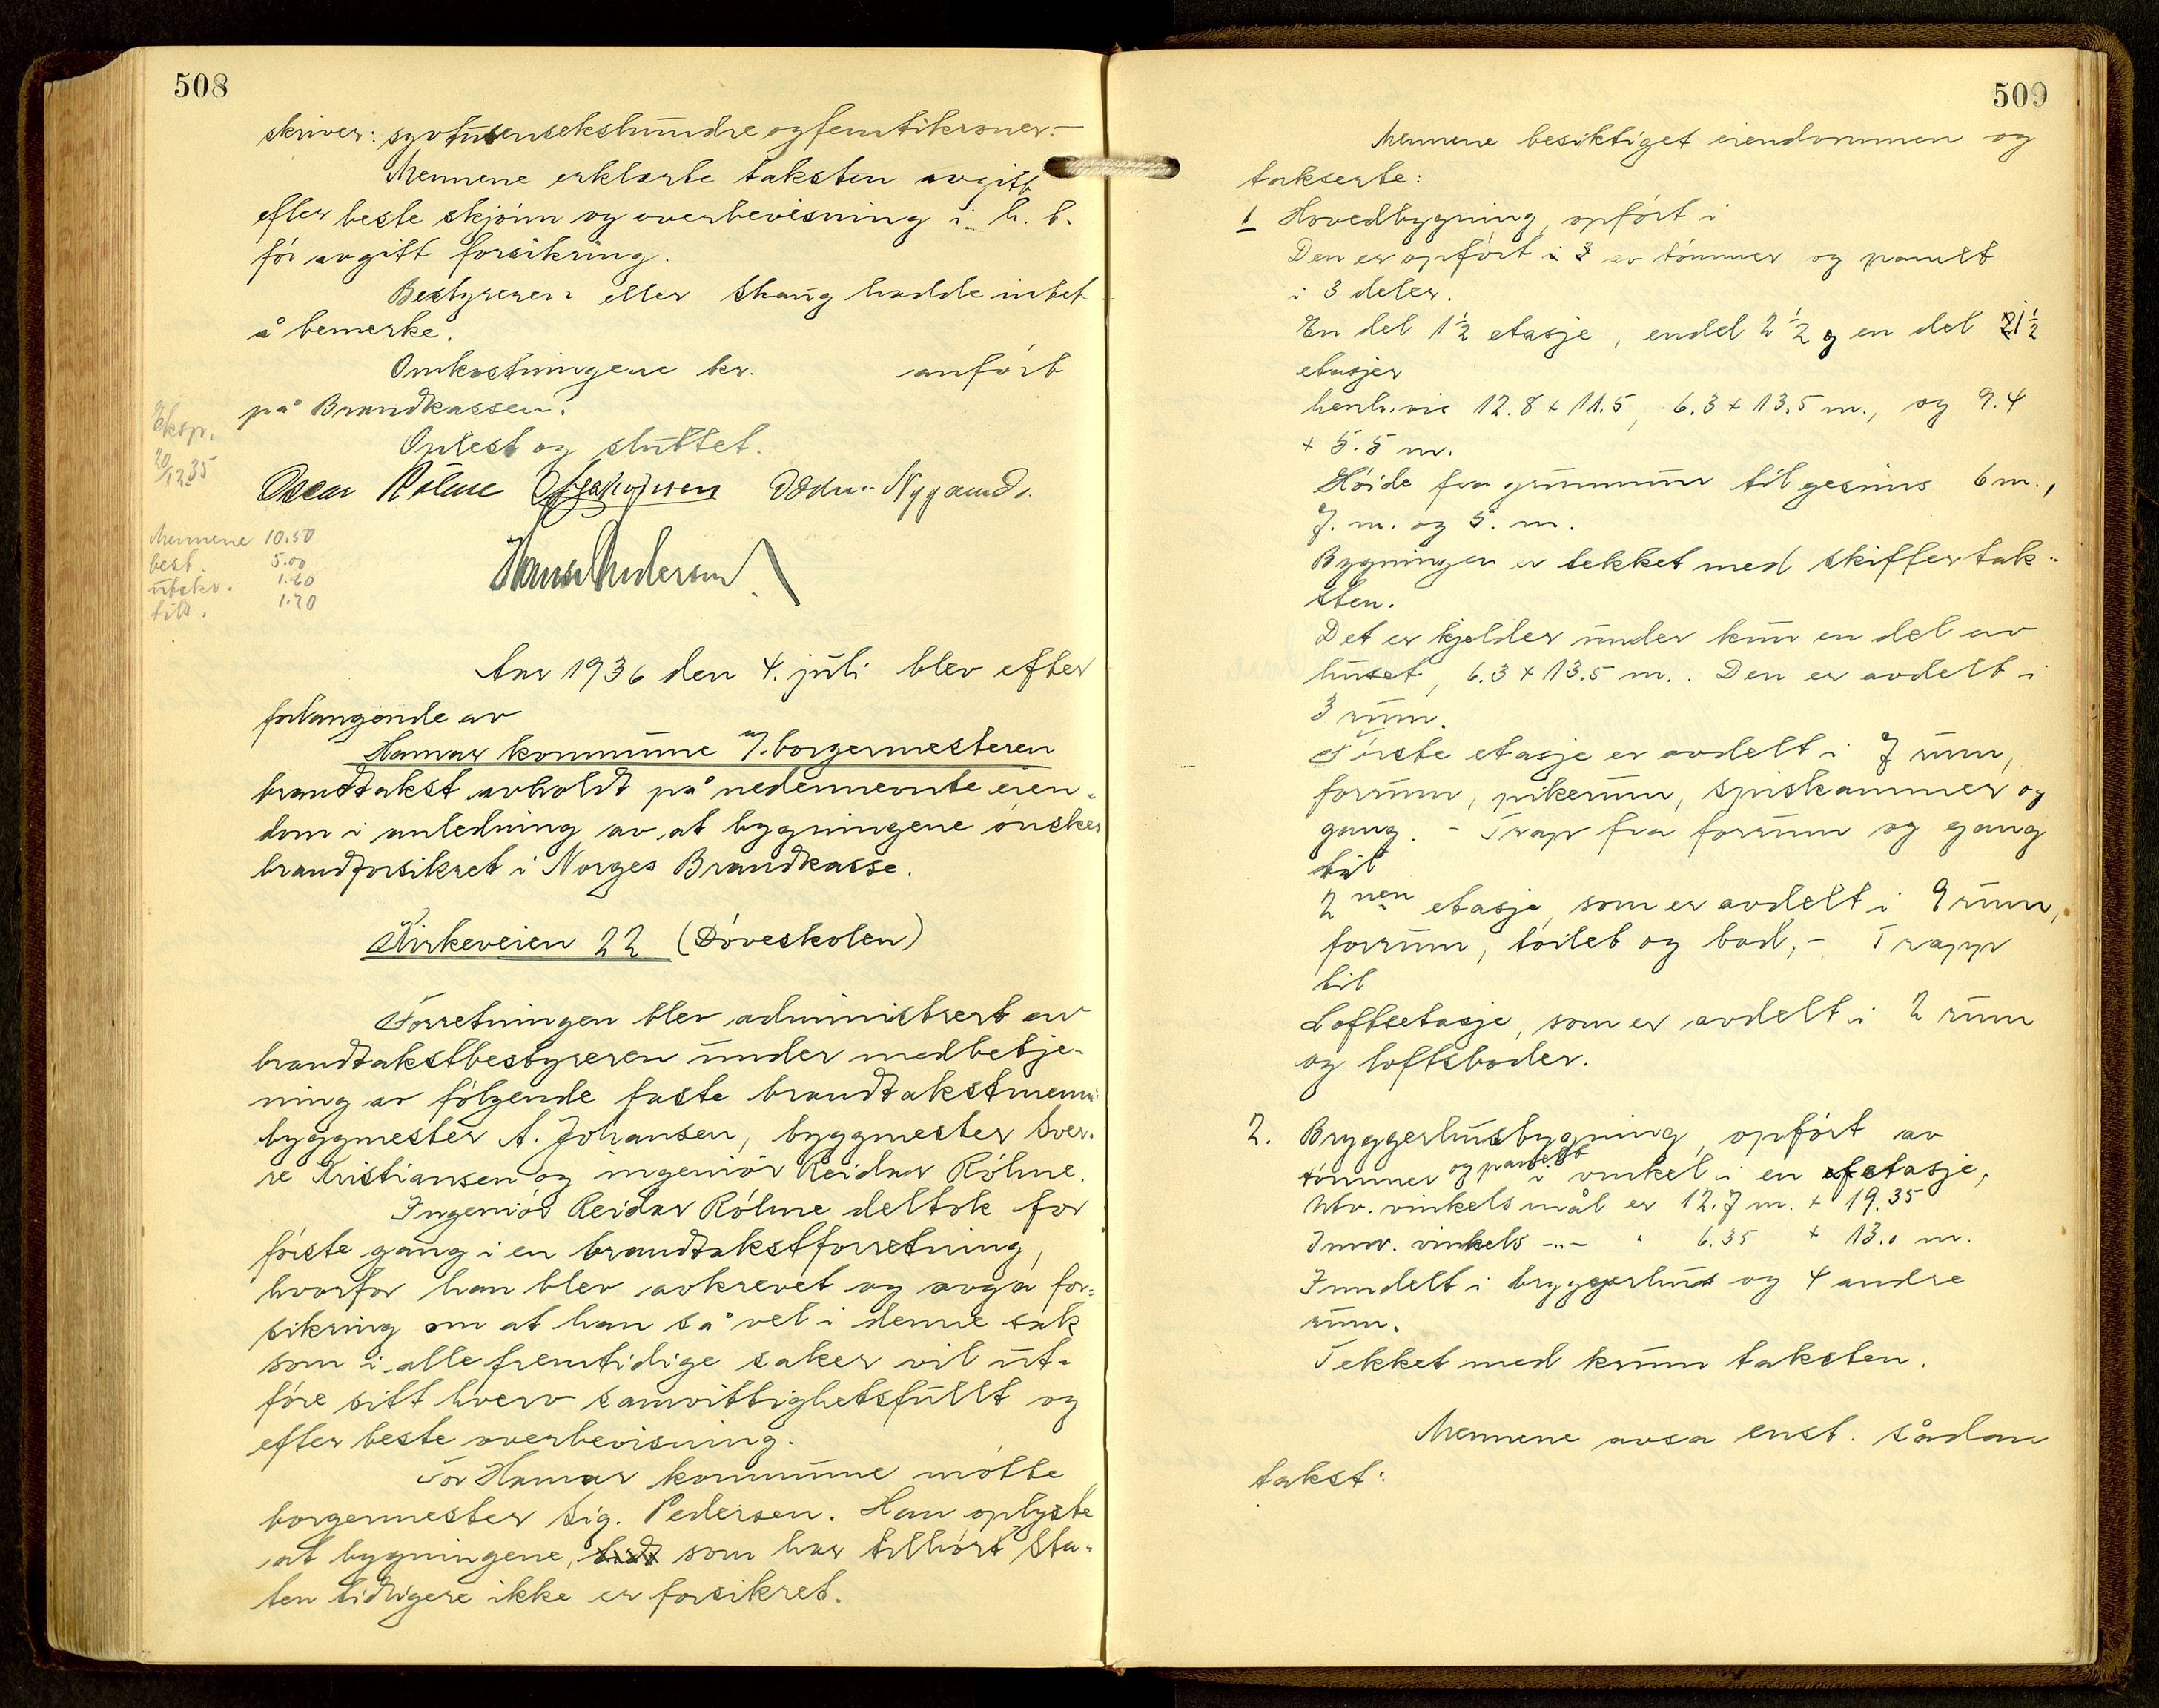 508
skriver: syvtusensekshundre og femtikroner.-
Mennene erklærte taksten avgitt
efter beste skjönn og overbevisning i h. t.
för avgitt forsikring.
Bestyreren eller Skaug hadde intet
å bemerke.
Omkostningene kr. anfört
på Brandkassen.
Oplest og sluttet.
Eksp.
20/12 35
Oscar Rölne Nygaard.
Mennene 10.50
best. 5.00
utskr. 1.60
till. 1.20
Hans Andersen
Aar 1936 den 4. juli blev efter
forlangende av
Hamar kommune v/borgermesteren
brandtakst avholdt på nedennevnte eien-
dom i anledning av at bygningene önskes
brandforsikret i Norges Brandkasse.
Kirkeveien 22 (Döveskolen)
Forretningen blev administrert av
brandtakstbestyreren under medbetje-
ning av fölgende faste brandtakstmenn:
byggmester A. Johansen, byggmester Sver-
re Kristiansen og ingeniör Reidar Rölne.
Ingeniör Reidar Rölne deltok for
förste gang i en brandtakstforretning,
hvorfor han blev avkrevet og avga for-
sikring om at han så vel i denne sak
som i alle fremtidige saker vil ut-
före sitt hverv samvittighetsfullt og
efter beste overbevisning.
For Hamar kommune mötte
borgermester Sig. Pedersen. Han oplyste
at bygningene, som har tilhört Sta-
ten tidligere ikke er forsikret.
509
Mennene besiktiget eiendommen og
takserte:
1 Hovedbygning, opfört i
Den er opfört i 3 av tömmer og panelt
i 3 deler.
En del 1½ etasje, endel 2½ og en del 1½
etasjer
henh.vis 12.8 x 11.5, 6.3 x 13.5 m., og 9.4
x 5.5 m.
Höide fra grunnmur til gesims 6 m.,
7. m. og 5. m.
Bygningen er tekket med skiffertak-
sten.
Det er kjelder under kun en del av
huset, 6.3 x 13.5 m.. Den er avdelt i
3 rum.
Förste etasje er avdelt i 7 rum,
forrum, pikerum, spiskammer og
gang. - Trap fra forrum og gang
til
2nen etasje, som er avdelt i 9 rum,
forrum, toilet og bad, - Trapp
til
Loftsetasje, som er avdelt i 2 rum
og loftsboder.
2. Bryggerhusbygning, opfört av
tömmer og panelt i vinkel i en etasje,
Utv. vinkelsmål er 12.7 m. x 19.35
Innv. vinkels -"- " 6.35 x 13.0 m.
Inndelt i bryggerhus og 4 andre
rum.
Tekket med krum taksten.
Mennene avsa enst. sådan
takst: